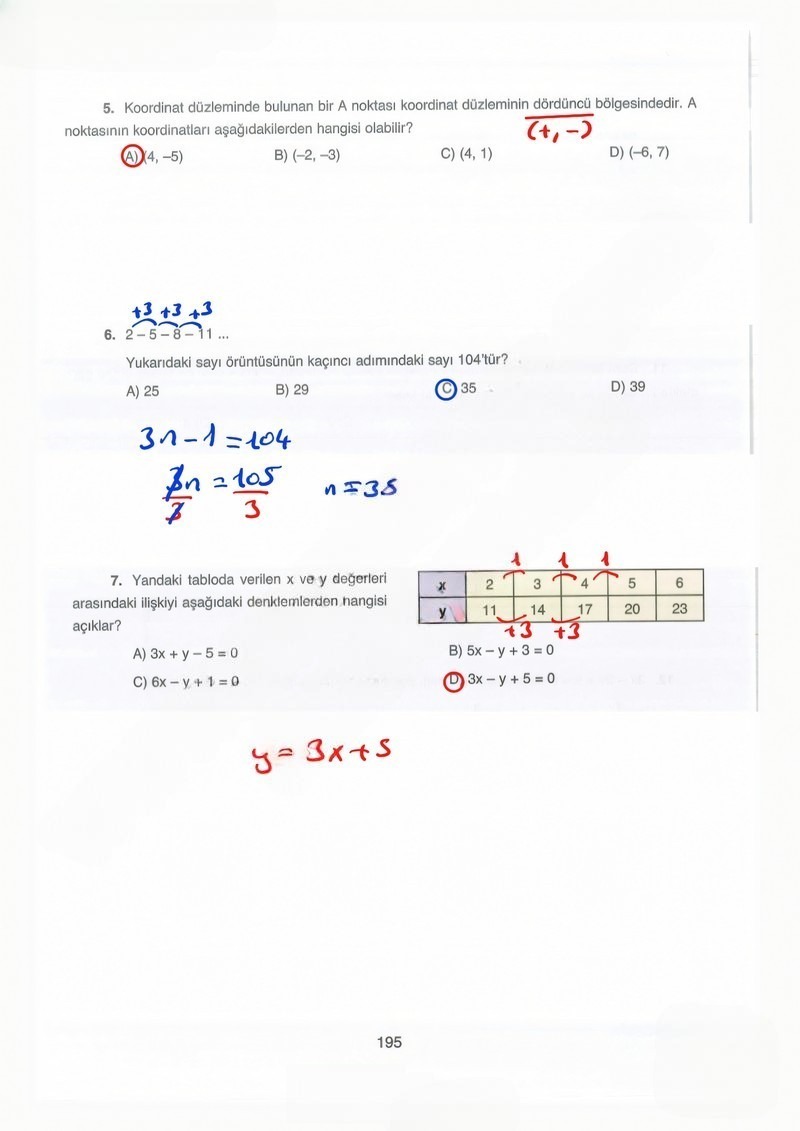 5. Koordinat düzleminde bulunan bir A noktası koordinat düzleminin dördüncü bölgesindedir. A
noktasının koordinatları aşağıdakilerden hangisi olabilir?
(+, -)
A) (4, –5) B) (–2, –3) C) (4, 1) D) (–6, 7)
+3 +3 +3
6. 2 – 5 – 8 – 11 ...
Yukarıdaki sayı örüntüsünün kaçıncı adımındaki sayı 104'tür?
A) 25 B) 29 C) 35 D) 39
3n - 1 = 104
3n = 105 n = 35
3 3
7. Yandaki tabloda verilen x ve y değerleri
arasındaki ilişkiyi aşağıdaki denklemlerden hangisi
açıklar?
1 1 1
x 2 3 4 5 6
y 11 14 17 20 23
+3 +3
A) 3x + y – 5 = 0 B) 5x – y + 3 = 0
C) 6x – y + 1 = 0 D) 3x – y + 5 = 0
y = 3x + 5
195